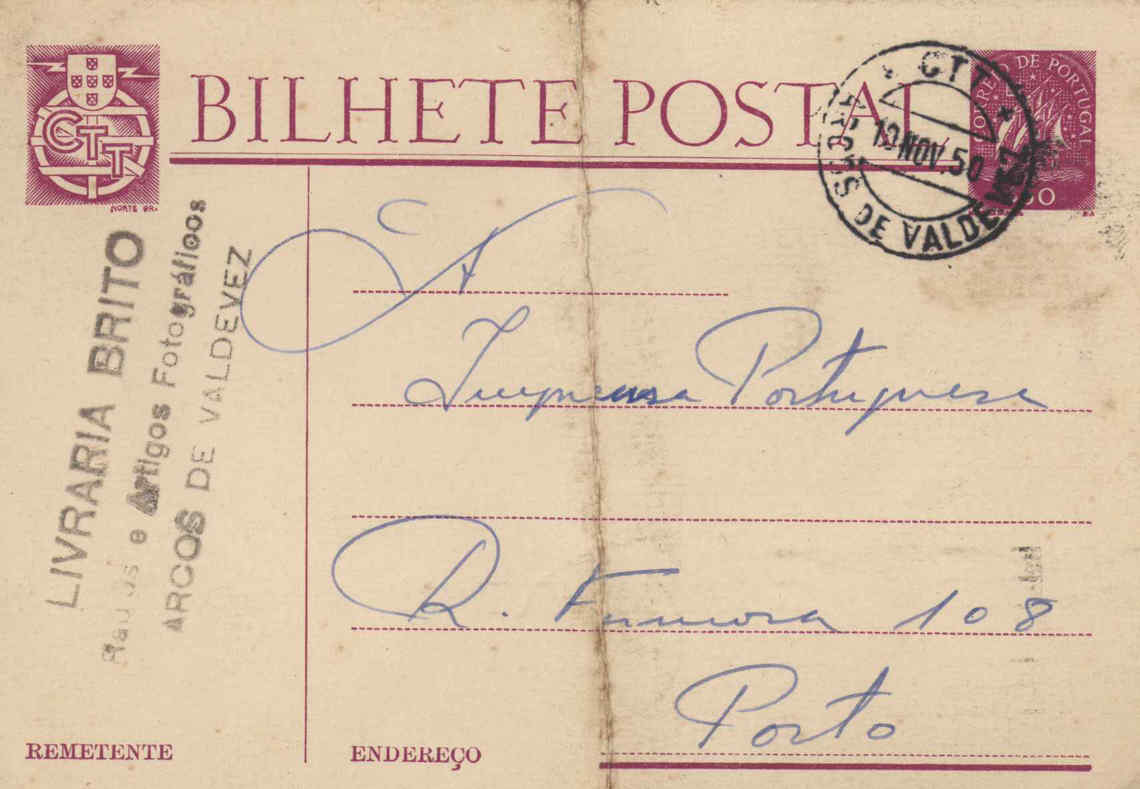 BILHETE POSTAL
CTT
NORTE GR.
CORREIO DE PORTUGAL
CTT
10 NOV. 50
ARCOS DE VALDEVEZ
LIVRARIA BRITO
e Artigos Fotográficos
ARCOS DE VALDEVEZ
A
Imprensa Portuguesa
R. Formosa 108
Porto
REMETENTE
ENDEREÇO